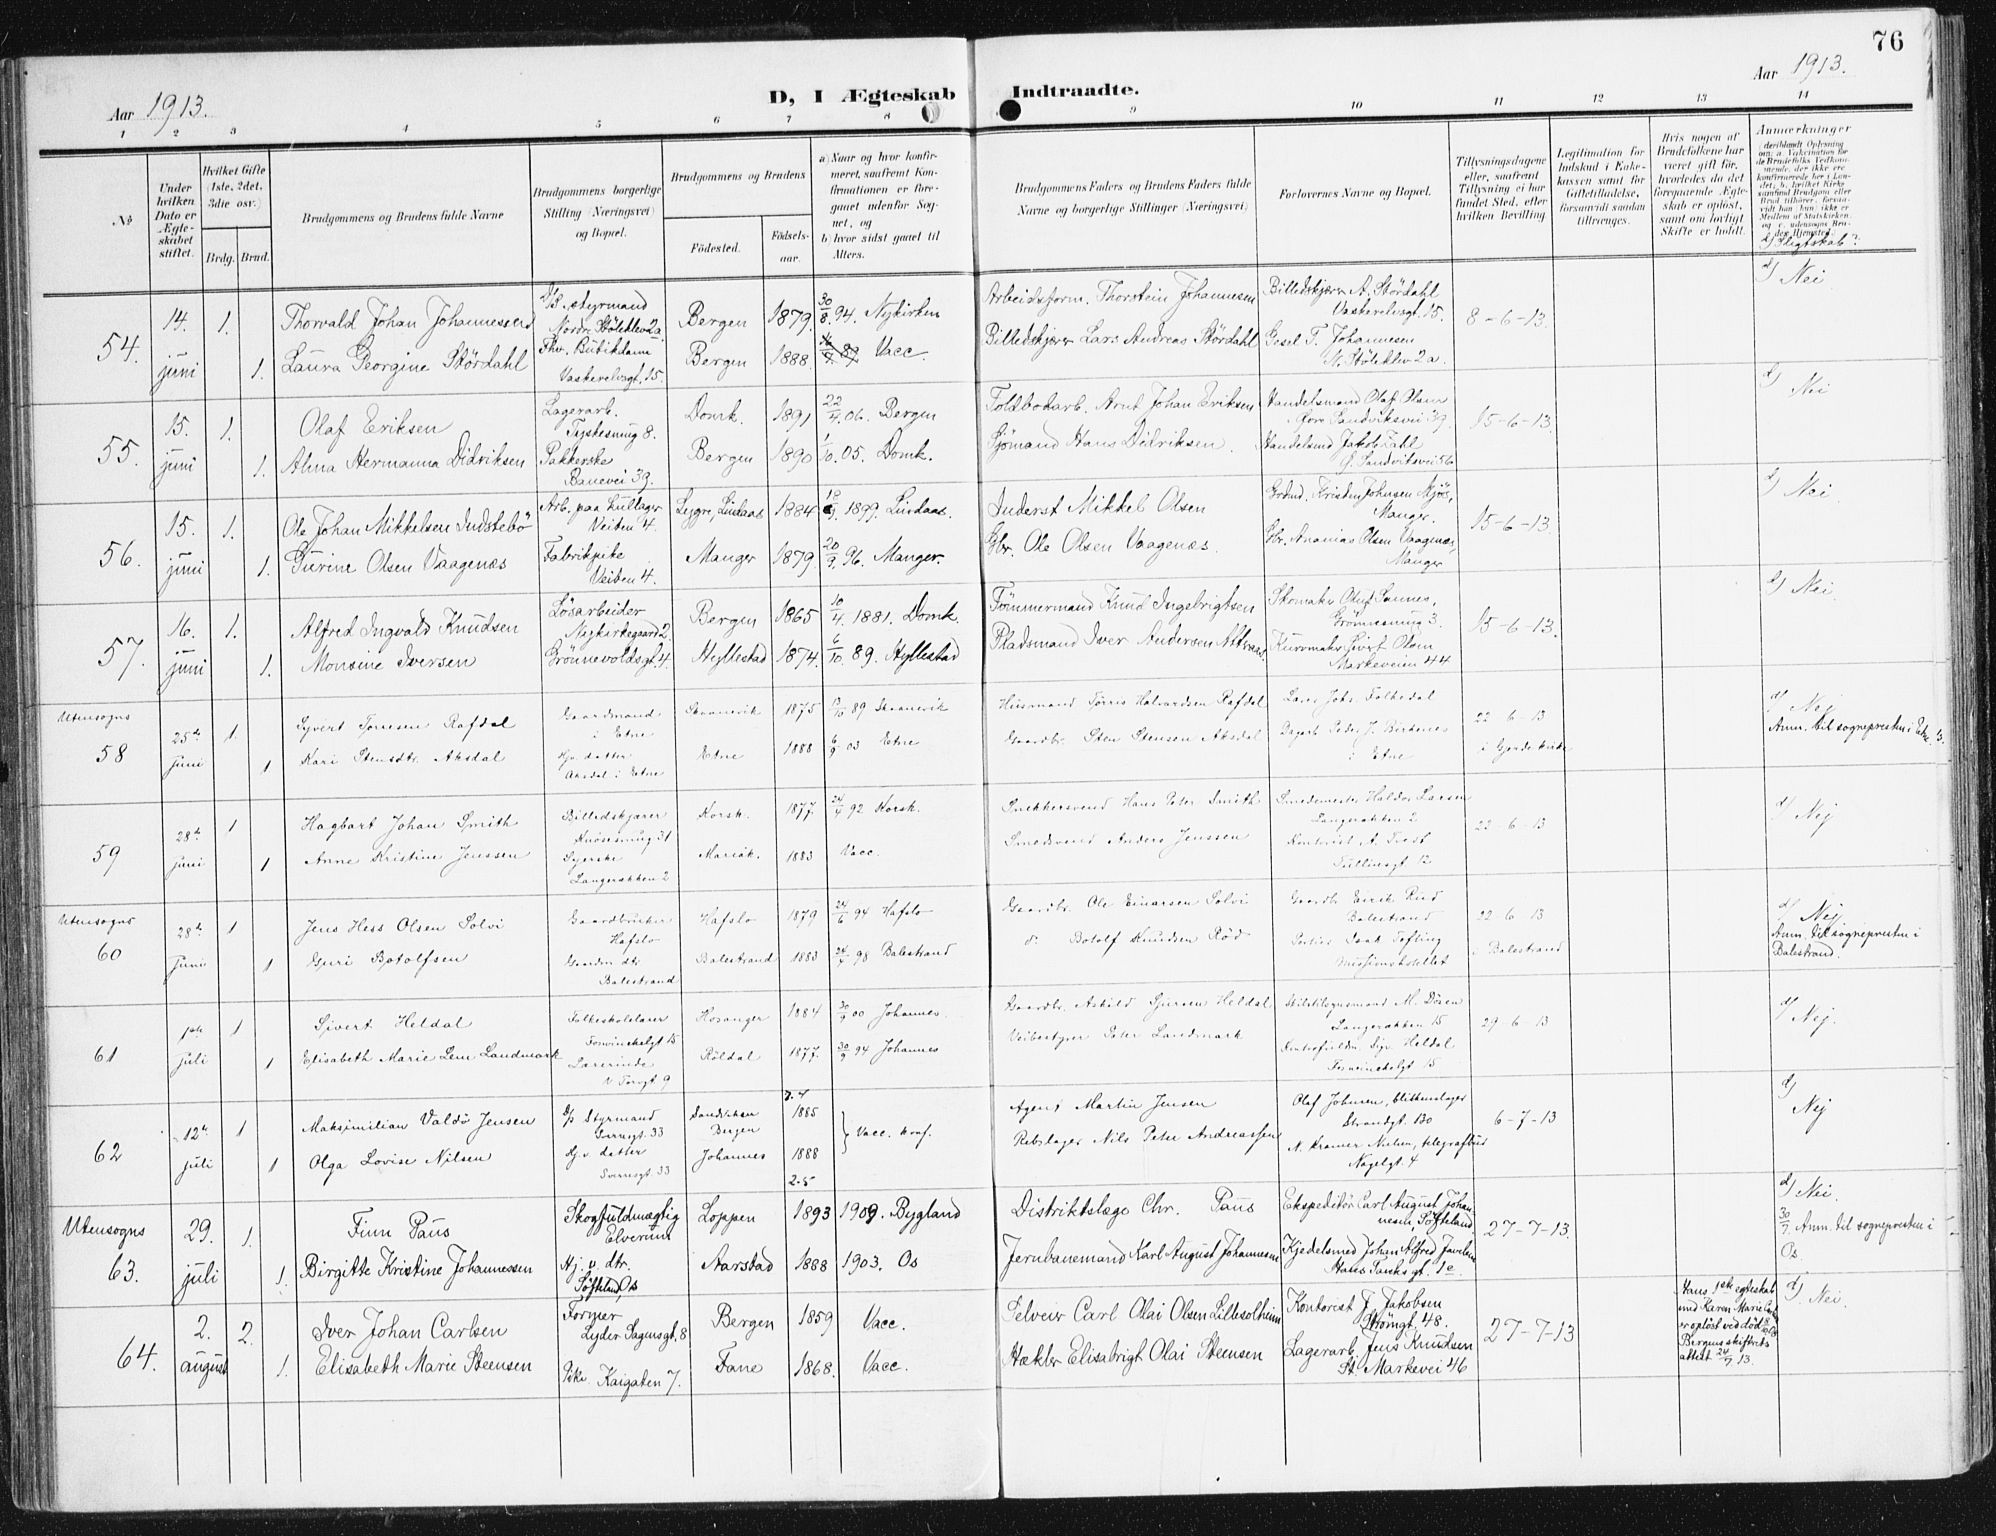 76
Aar 1913.
D, I Ægteskab Indtraadte.
Aar 1913.
1 2 3 4 5 6 7 8 9 10 11 12 13 14
№
Under hvilken Dato er Ægteskabet stiftet.
Hvilket Gifte (1ste, 2det, 3die osv.)
Brdg. Brud.
Brudgommens og Brudens fulde Navne
Brudgommens borgerlige Stilling (Næringsvei) og Bopæl.
Brudgommens og Brudens
Födested.
Födselsaar.
a) Naar og hvor konfirmeret, saafremt Konfirmationen er foregaaet udenfor Sognet, og
b) hvor sidst gaaet til Alters.
Brudgommens Faders og Brudens Faders fulde Navne og borgerlige Stillinger (Næringsvei)
Forlovernes Navne og Bopæl.
Tillysningsdagene eller, saafremt Tillysning ei har fundet Sted, efter hvilken Bevilling
Legitimation for Indskud i Enkekassen samt for Giftetilladelse, forsaavidt saadan tiltrænges.
Hvis nogen af Brudefolkene har været gift för, hvorledes da det foregaaende Ægteskab er oplöst, samt om lovligt Skifte er holdt.
Anmærkninger
d) Slegtskab?
54. 14. juni 1. Thorvald Johan Johannessen
Styrmand Nordre Stöleklev 2a. Bergen 1879 30/8. 94. Nykirken
Arbeidsform. Thorstein Johannesen
Billedskjærer A. Stördahl
Vaskerelvsgt. 15. 8-6-13. d) Nei
1. Laura Georgine Stördahl
Fhv. Butikdame Vaskerelvsgt. 15. Bergen 1888. Vacc.
Billedskjærer Lars Andreas Stördahl
T. Johannesen
N. Stöleklev 2a.
55. 15. juni 1. Olaf Eriksen
Lagerarb. 8. Domk. 1891 22/4. 06. Bergen
Toldbodarb. Arnt Johan Eriksen
Handelsmand Olaf Olsen
Sandviksvei 39 15-6-13. d) Nei
1. Alma Hermanna Didriksen
Pakkerske Banevei 39. Bergen 1890 1/10. 05. Domk.
Sjömand Hans Didriksen.
Handelsmd Jakob Zahl
Ö. Sandviksvei 56
56. 15. juni 1. Ole Johan Mikkelsen Indstebö
Arb. paa kullager Veiten 4. Lygre, Lindaas 1884 1899. Lindaas.
Inderst Mikkel Olsen
Grdmd. Kristen Johnsen Mjös,
Manger. 15-6-13. d) Nei.
1. Gurine Olsen Vaagenæs
Fabrikpike Veiten 4. Manger 1879 20/9. 96. Manger.
Gbr. Ole Olsen Vaagenæs.
Gbr. Ananias Olsen Vaagenæs,
Manger
57. 16. juni 1. Alfred Ingvald Knudsen
Lösarbeider Nykirkegaard 2. Bergen 1865 10/4. 1881. Domk.
Tömmermand Knud Ingebrigtsen
Skomaker Oluf Sannes,
3. 15-6-13. d) Nei.
1. Monsine Iversen
Grönnevoldsgt. 4. Hyllestad 1874. 6/10. 89. Hyllestad
Pladsmand Iver Andersen
Kurvmaker Sivert Olsen
Markeveien 44
Utensogns
58 25de juni 1. Syvert Torresen Rafdal
Gaardmand i Etne Skaanevik 1875 89 Skaanevik
Husmand Törris Halvardsen Rafdal
Lars Johs. Falkedal 22-6-13 d) Nej
1 Kari Stensdtr. Aksdal
Hjv. datter Aksdal i Etne Etne 1888 6/9 03 Etne
Gaardbr. Sten Stensen Aksdal
Dagarb. Peder J. Birkenes
i Etne i Gjerde kirke
Anm. til sognepresten i Etne
59 28de juni 1 Hagbart Johan Smith
Billedskjærer Knösesmug 31 Korsk. 1877 24/4 92 Korsk.
Snekkersvend Hans Peter Smith
Smedemester Haldor Larsen
Langerækken 2 22-6-13 d) Nej
1 Anne Kristine Jenssen
Syerske Langerækken 2 Mariak. 1883 Vacc.
Smedsvend Anders Jenssen
Kontorist A.
Tullinsgt 12
Utensogns
60 28de juni 1 Jens Hess Olsen Solvi
Gaardbruker Hafslo Hafslo 1879 24/6 94 Hafslo
Gaardbr. Ole Einarsen Solvi
Gaardb. Eirik Rud
Balestrand 22-6-13 d) Nej
1 Guri Botolfsen
Gaardm. dtr. Balestrand Balestrand 1883 24/7 98 Balestrand
d: Botolf Knudsen Röd
Portier Isak Tofting
Missionshotellet i Balestrand
Anm. til sognepresten i
Balestrand.
61 1ste juli 1 Sjvert Heldal
Folkeskolelærer Fosswinckelgt 15 Hosanger 1884 30/9 00 Johannes.
Gaardbr. Askild Sjursen Heldal
M. Dösen
Langerækken 15 29-6-13 d) Nej.
1 Elisabeth Marie Lem Landmark
Lærerinde V. Torvgt 9 Röldal 1877. 30/9 94 Johannes
Veibestyrer Peter Landmark
Sigv. Heldal
Foswinckelgt 15
62 12te juli 1 Maksimilian Valdö Jensen
D/p Styrmand Sverresgt. 33 Sandviken Bergen 7.4 1885
Vacc. konf.
Agent Martin Jensen
Olaf Johnsen, blikkenslager
Strandgt. 130 6-7-13 d) Nej
1 Olga Lovise Nilsen
Hj. v. datter Sverresgt. 33 Johannes 1888 2-5
Rebslager Nils Peter Andreassen
N. Kramer Nielsen, telegrafbud
Nögelgt. 4
Utensogns
63. 29. juli 1. Finn Paus
Skogfuldmægtig Elverum Loppen 1893 1909. Bygland
Distriktslæge Chr. Paus
Ekspeditör Carl August Johannesen, Söfteland 27-7-13. d) Nei.
1. Birgitte Kristine Johannessen
Hj. v. dtr. Söfteland, Os Aarstad 1888 1903. Os
Jernbanemand Karl August Johannesen
Kjedelsmed Johan Alfred
Hans Tanksgt. 1c.
30/7. Anm. til sognepresten i
Os.
64. 2. august 2. Iver Johan Carlsen
Former Lyder Sagensgt. 8 Bergen 1859 Vacc.
Selveier Carl Olai Olsen Lillesolheim
Kontorist J. Jakobsen
Strömgt. 48. 27-7-13
Hans 1ste egteskab
med Karen Marie
er oplöst ved död
Bergens skifterets
attest 24/7 13.
d) Nei.
1. Elisabeth Marie Steensen
Pike Kaigaten 7. Fane 1868. Vacc.
Hækler Elisabrigt Olai Steensen
Lagerarb. Jens Knudsen
St. Markevei 46